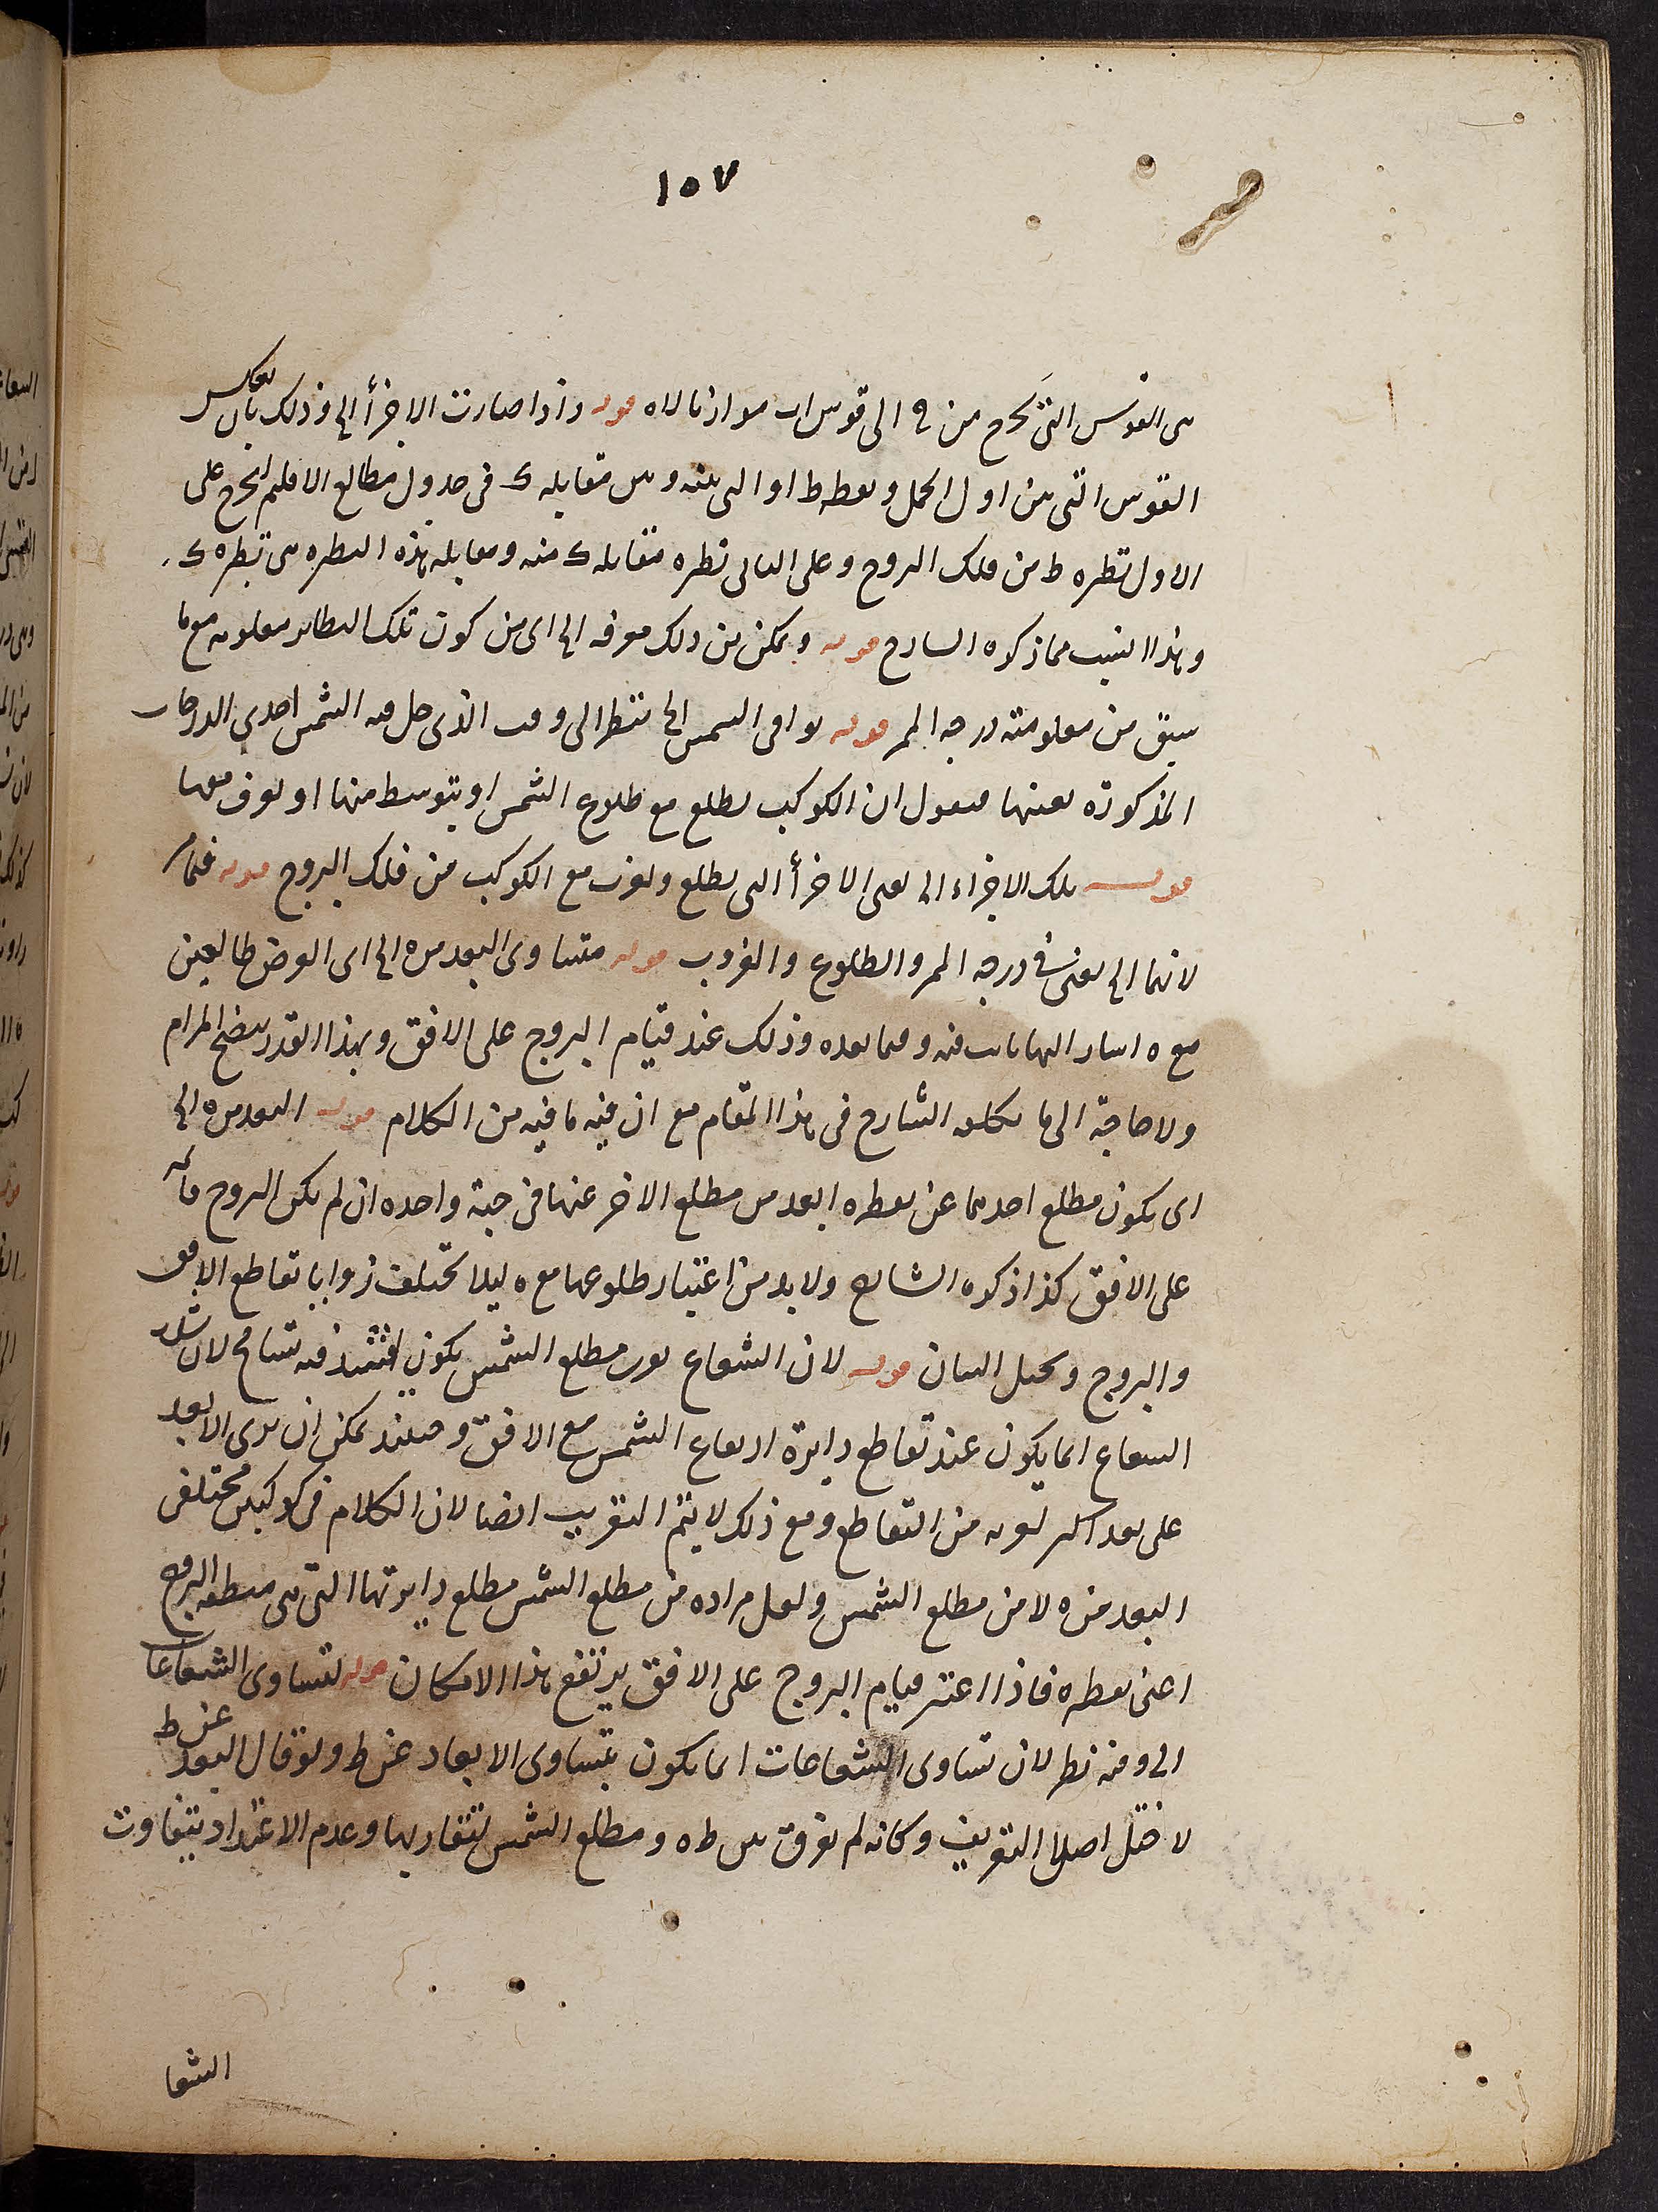 ١٥٧
هى القوس التى تخرج من ه الى قوس اب موازيا لاه قوله واذا صارت الاجزأ الخ وذلك بان يعكس
القوس التى من اول الحمل ونقطه ط او التى بينه وبين مقابله ك فى جدول مطالع الاقليم ليخرج على
الاول نظيره ط من فلك البروج وعلى الثانى نظيره مقابله ك منه ومقابله هذه النظيره هى نظيره ك
وهذا انسب مما ذكره الشارح قوله ويمكن من ذلك معرفه الخ اى من كون تلك النظاير معلومه مع ما
سبق من معلوميته درجه الممر قوله يوافى الشمس الخ ننظر الى وقت الذى حل فيه الشمس احدى الدرجات
المذكورة بعينها فنقول ان الكوكب يطلع مع طلوع الشمس او يتوسط منها او يغرب معها
قوله تلك الاجزاء الخ يعنى الاجزأ التى يطلع ويغرب مع الكوكب من فلك البروج قوله فيما مر
لانهما الخ يعنى فى درجه الممر والطلوع والغروب قوله متساوى البعد من ه الخ اى العرض طالعين
مع ه اشار النهايات فيه وفيما بعده وذلك عند قيام البروج على الافق وبهذا القدر يتضح المرام
ولا حاجة الى ما تكلف الشارح فى هذا المقام مع ان فيه ما فيه من الكلام قوله البعد من ه الخ
اى يكون مطلع احدهما عن نقطه ه ابعد من مطلع الاخر عنها فى جهة واحده ان لم يكن البروج قائمه
على الافق كذا ذكره الشارح ولا بد من اعتبار طلوعهما مع ه ليلا تختلف زوايا تقاطع الافق
والبروج ويختل البيان قوله لان الشعاع بقرب مطلع الشمس يكون اشد فيه تسامح لان شده
الشعاع انما يكون عند تقاطع دايرة ارتفاع الشمس مع الافق وحينئذ يمكن ان يرى الابعد
على بعد اكثر لقربه من التقاطع ومع ذلك لا يتم التقريب ايضا لان الكلام فى كوكبين مختلفى
البعد من ه لا من مطلع الشمس ولعل مراده من مطلع الشمس مطلع دايرتها التى هى منطقه البروج
اعنى نقطه ه فاذا اعتبر قيام البروج على الافق يرتفع هذا الامكان قوله لتساوى الشعاعات
الخ وفيه نظر لان تساوى الشعاعات انما يكون بتساوى الابعاد عن ط ولو قال البعد عن ط
لاختل اصلا التقريب وكانه لم يفرق بين ط ه ومطلع الشمس لتقاربهما وعدم الاعتداد بتفاوت
الشعا